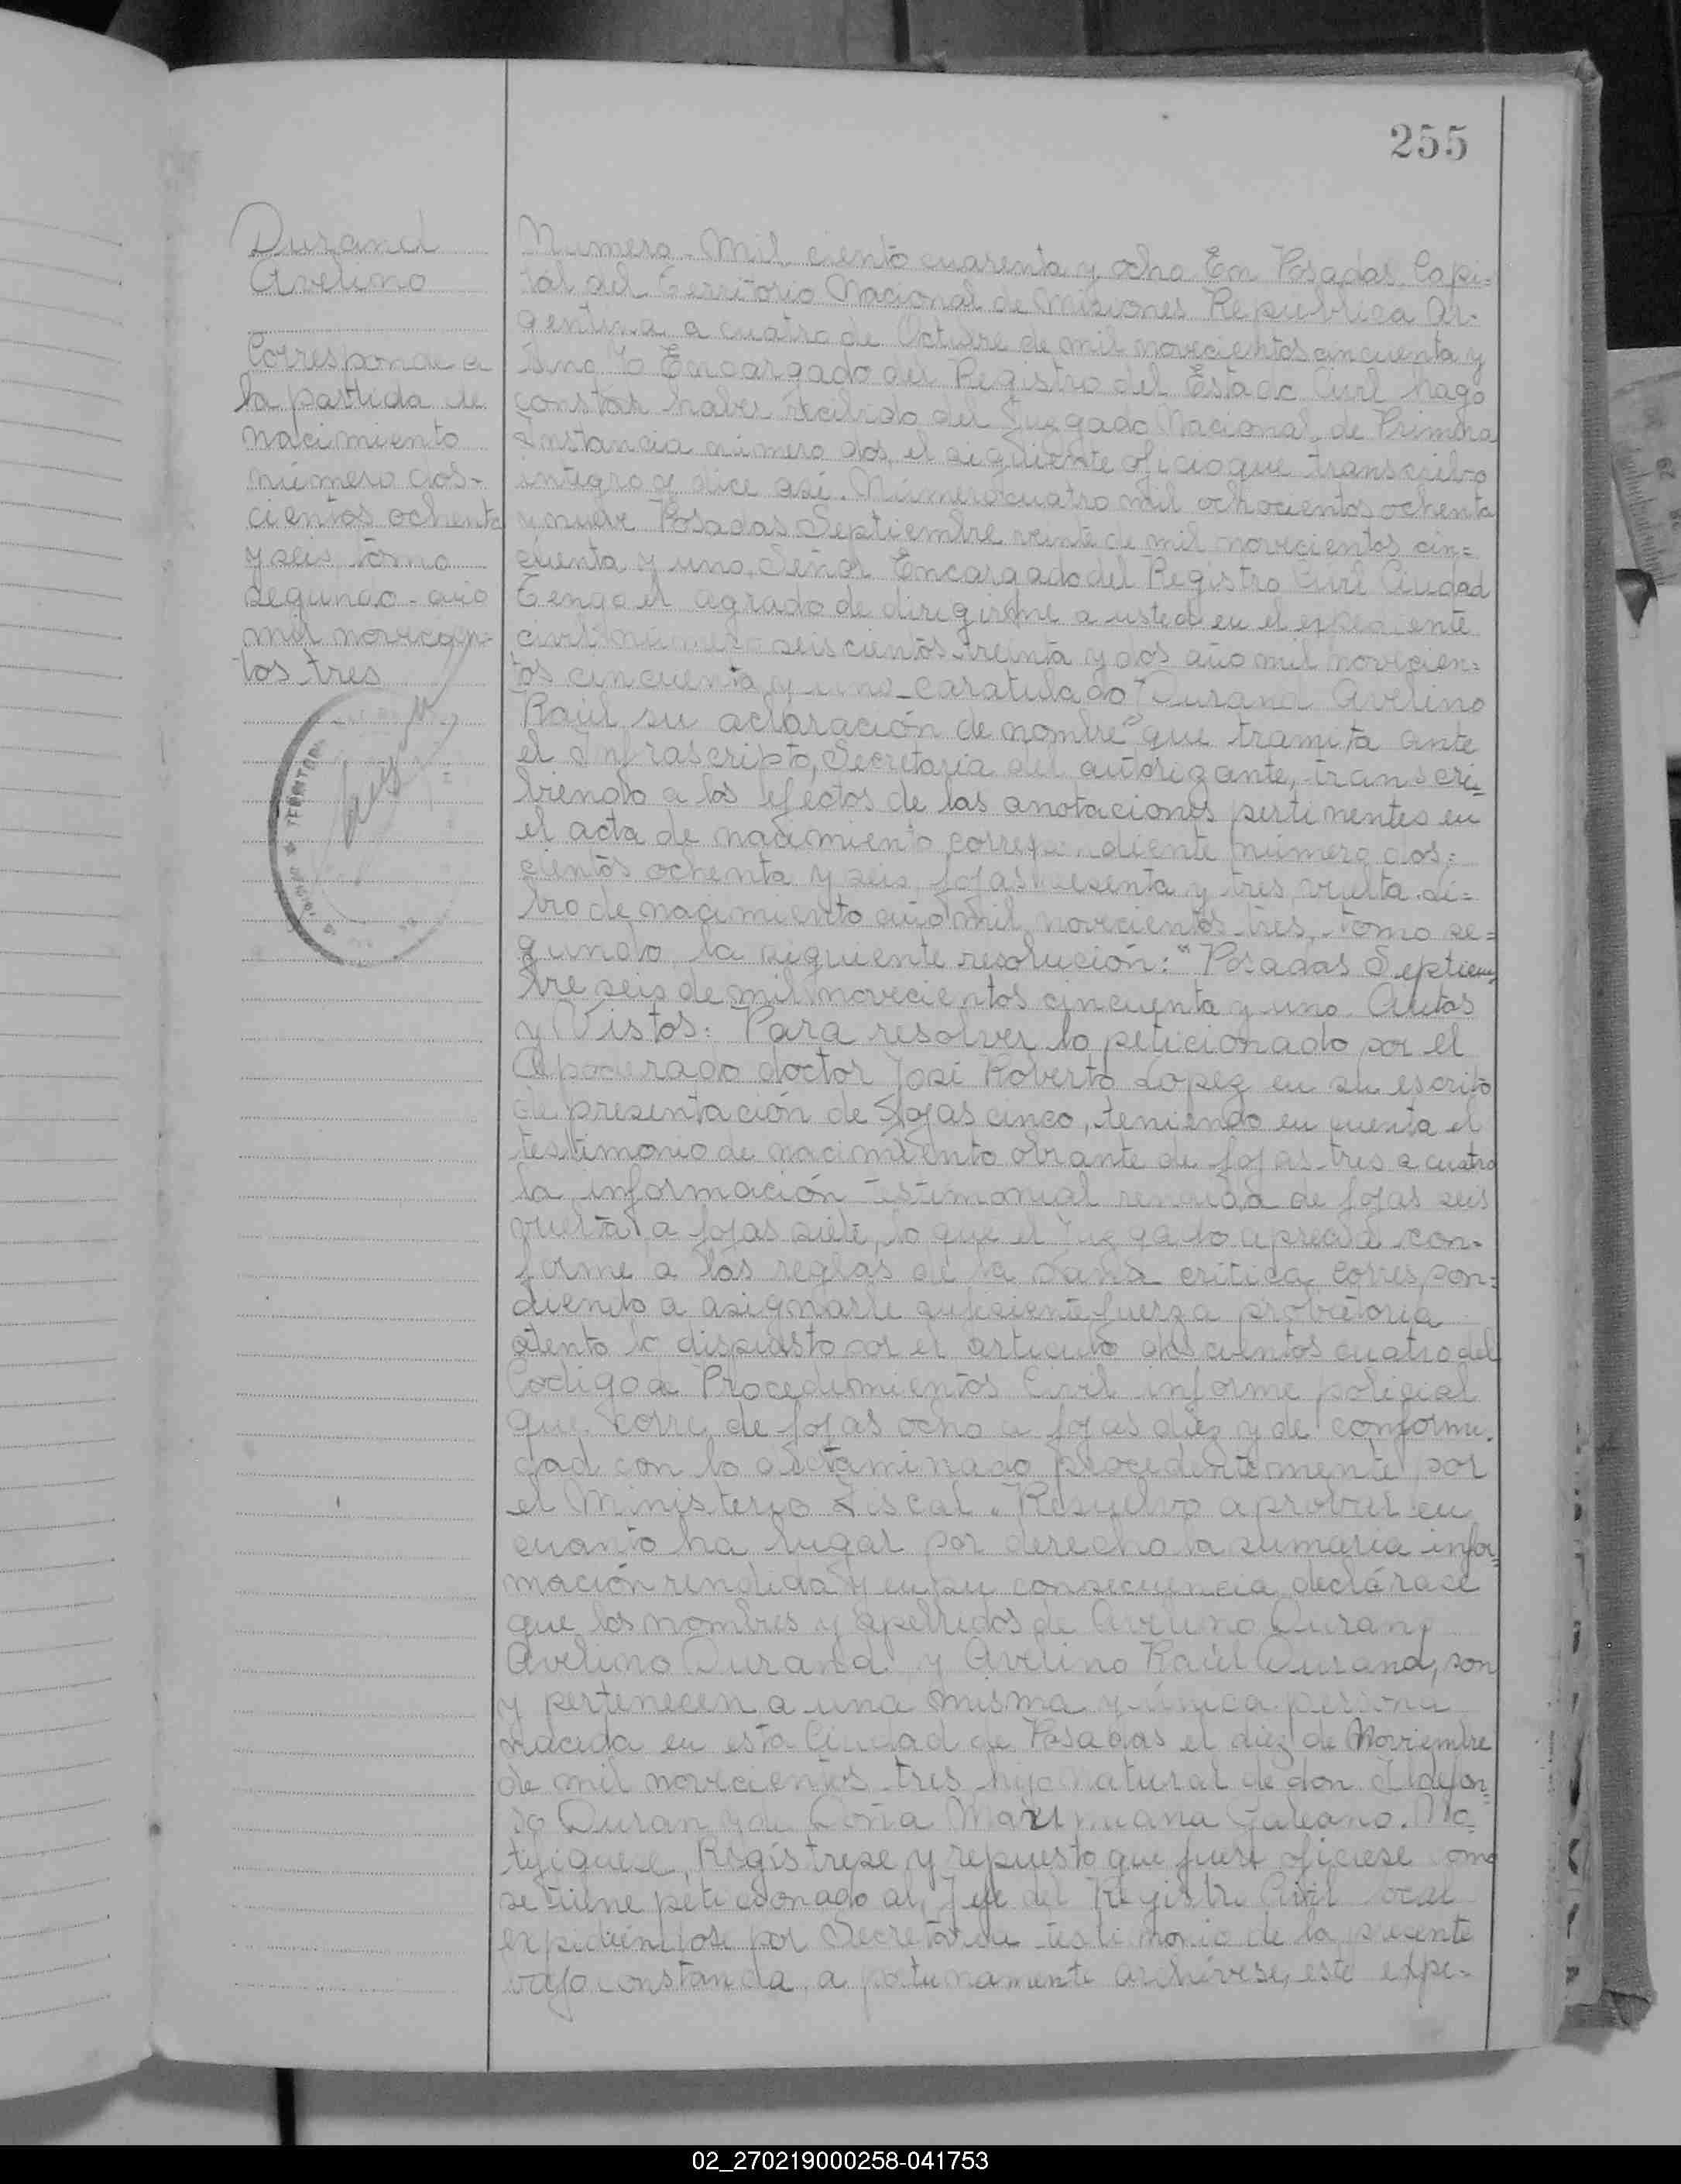 255
Durand
Avelino
Corresponde a
la partida de
nacimiento
número dos-
cientos ochenta
y seis tomo
segundo - año
mil novecien-
tos tres
TERRITORIO
Numero - Mil ciento cuarenta y ocho En Posadas, Capi-
tal del Territorio Nacional de Misiones Republica Ar-
gentina a cuatro de Octubre de mil novecientos cincuenta y
uno Yo Encargado del Registro del Estado Civil hago
constar haber recibido del Juzgado Nacional de Primera
Instancia número dos, el siguiente oficio que transcribo
integro y dice asi. Número cuatro mil ochocientos ochenta
y nueve Posadas Septiembre veinte de mil novecientos cin=
cuenta y uno, Señor Encargado del Registro Civil Ciudad
Tengo el agrado de dirigirme a usted en el expediente
civil número seiscientos treinta y dos año mil novecien=
tos cincuenta y uno - caratulado "Durand Avelino
Raúl su aclaración de nombre" que tramita ante
el Infrascripto, Secretaria del autorizante, transcri=
biendo a los efectos de las anotaciones pertinentes en
el acta de nacimiento correspondiente número dos=
cientos ochenta y seis fojas sesenta y tres vuelta Li=
bro de nacimiento año mil novecientos tres, tomo se=
gundo, la siguiente resolución: "Posadas Septiem=
bre seis de mil novecientos cincuenta y uno Autos
y Vistos: Para resolver lo peticionado por el
Apoderado doctor José Roberto Lopez en su escrito
de presentación de fojas cinco, teniendo en cuenta el
testimonio de nacimiento obrante de fojas tres a cuatro
la información testimonial rendida de fojas seis
vuelta a fojas siete, lo que el Juzgado aprecia con=
forme a las reglas de la sana critica correspon=
diendo a asignarle suficiente fuerza probatoria
atento lo dispuesto por el articulo doscientos cuatro del
Codigo de Procedimientos Civil informe policial
que corre de fojas ocho a fojas diez y de conformi-
dad con lo dictaminado procedentemente por
el Ministerio Fiscal. Resuelvo aprobar en
cuanto ha lugar por derecho la sumaria infor=
mación rendida y en su consecuencia declárase
que los nombres y apellidos de Avelino Duran,
Avelino Durand y Avelino Raúl Durand, son
y pertenecen a una misma y única persona
nacida en esta Ciudad de Posadas el diez de Noviembre
de mil novecientos tres hijo natural de don Ildefon=
so Duran y de Doña Maximiana Galeano. No=
tifiquese, Regístrese y repuesto que fuere oficiese como
se tiene peticionado al Jefe del Registro Civil local
expediendose por Secretaria testimonio de la presente
bajo constancia a portunamente archívese, este expe-
02_270219000258-041753